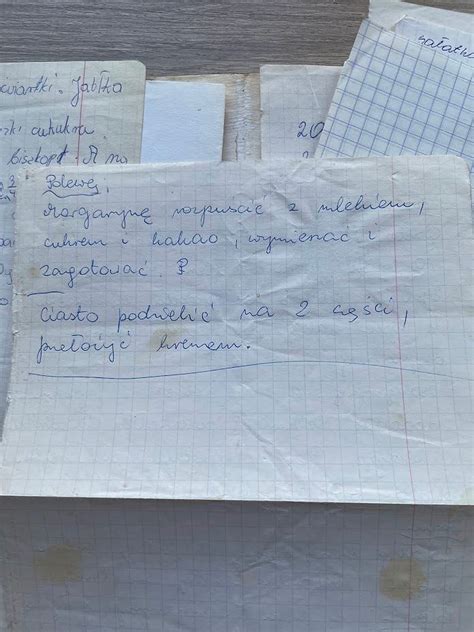 sałatka
Jabłka
cukukra
biszkopt. A no
20
Polewa,
Margarynę rozpuścić z mlekiem,
cukrem i kakao, wymieszać i
zagotować.
Ciasto podzielić na 2 części,
przełożyć kremem.